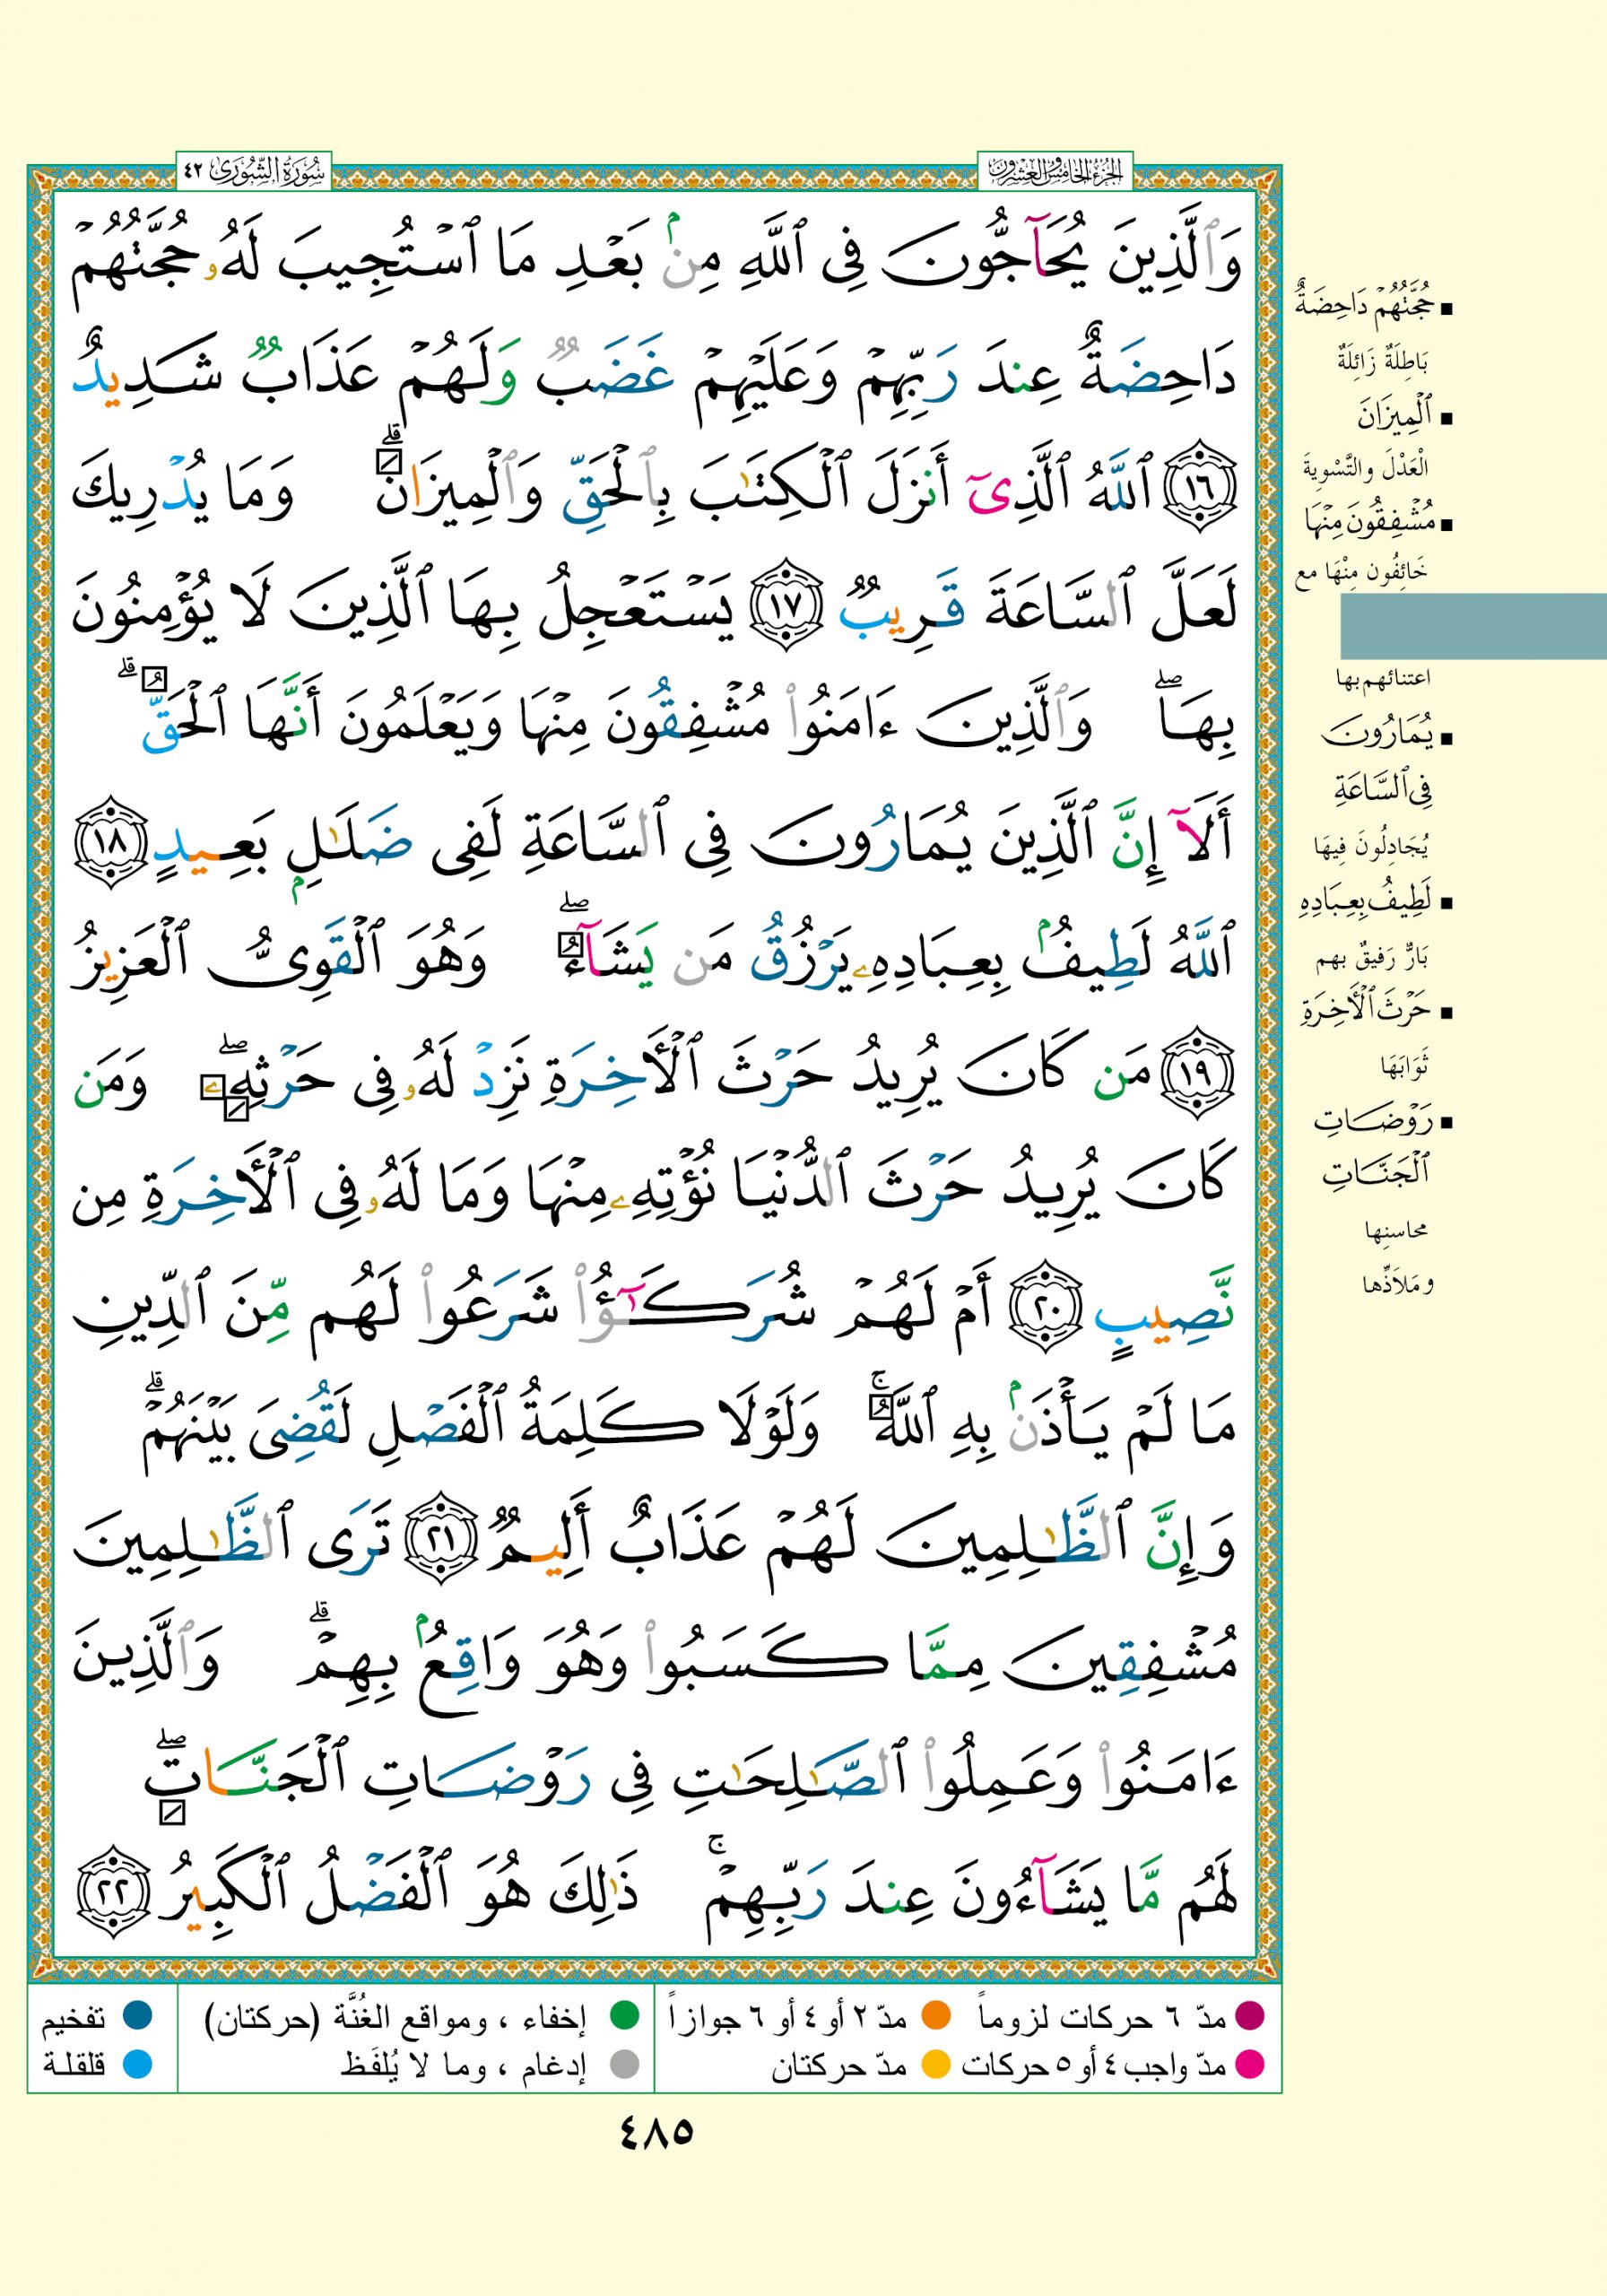 الجزء الخامس والعشرون
سُورَةُ الشُّورَىٰ ٤٢
وَٱلَّذِينَ يُحَآجُّونَ فِى ٱللَّهِ مِنۢ بَعۡدِ مَا ٱسۡتُجِيبَ لَهُۥ حُجَّتُهُمۡ
دَاحِضَةٌ عِندَ رَبِّهِمۡ وَعَلَيۡهِمۡ غَضَبٞ وَلَهُمۡ عَذَابٞ شَدِيدٌ
١٦ ٱللَّهُ ٱلَّذِىٓ أَنزَلَ ٱلۡكِتَٰبَ بِٱلۡحَقِّ وَٱلۡمِيزَانَۗ وَمَا يُدۡرِيكَ
لَعَلَّ ٱلسَّاعَةَ قَرِيبٞ ١٧ يَسۡتَعۡجِلُ بِهَا ٱلَّذِينَ لَا يُؤۡمِنُونَ
بِهَاۖ وَٱلَّذِينَ ءَامَنُواْ مُشۡفِقُونَ مِنۡهَا وَيَعۡلَمُونَ أَنَّهَا ٱلۡحَقُّۗ
أَلَآ إِنَّ ٱلَّذِينَ يُمَارُونَ فِى ٱلسَّاعَةِ لَفِى ضَلَٰلِۭ بَعِيدٍ ١٨
ٱللَّهُ لَطِيفُۢ بِعِبَادِهِۦ يَرۡزُقُ مَن يَشَآءُۖ وَهُوَ ٱلۡقَوِىُّ ٱلۡعَزِيزُ
١٩ مَن كَانَ يُرِيدُ حَرۡثَ ٱلۡأٓخِرَةِ نَزِدۡ لَهُۥ فِى حَرۡثِهِۦۖ وَمَن
كَانَ يُرِيدُ حَرۡثَ ٱلدُّنۡيَا نُؤۡتِهِۦ مِنۡهَا وَمَا لَهُۥ فِى ٱلۡأٓخِرَةِ مِن
نَّصِيبٍ ٢٠ أَمۡ لَهُمۡ شُرَكَٰٓؤُاْ شَرَعُواْ لَهُم مِّنَ ٱلدِّينِ
مَا لَمۡ يَأۡذَنۢ بِهِ ٱللَّهُۚ وَلَوۡلَا كَلِمَةُ ٱلۡفَصۡلِ لَقُضِىَ بَيۡنَهُمۡۗ
وَإِنَّ ٱلظَّٰلِمِينَ لَهُمۡ عَذَابٌ أَلِيمٞ ٢١ تَرَى ٱلظَّٰلِمِينَ
مُشۡفِقِينَ مِمَّا كَسَبُواْ وَهُوَ وَاقِعُۢ بِهِمۡۗ وَٱلَّذِينَ
ءَامَنُواْ وَعَمِلُواْ ٱلصَّٰلِحَٰتِ فِى رَوۡضَاتِ ٱلۡجَنَّاتِۖ
لَهُم مَّا يَشَآءُونَ عِندَ رَبِّهِمۡۚ ذَٰلِكَ هُوَ ٱلۡفَضۡلُ ٱلۡكَبِيرُ ٢٢
■ حُجَّتُهُمۡ دَاحِضَةٌ
بَاطِلَةٌ زَائِلَةٌ
■ ٱلۡمِيزَانَ
الْعَدْلَ والتَّسْوِيةَ
■ مُشۡفِقُونَ مِنۡهَا
خَائِفُون مِنْهَا مع
اعتنائهم بها
■ يُمَارُونَ
فِى ٱلسَّاعَةِ
يُجَادِلُونَ فِيهَا
■ لَطِيفُۢ بِعِبَادِهِ
بَارٌّ رَفيقٌ بهم
■ حَرۡثَ ٱلۡأٓخِرَةِ
ثَوَابَهَا
■ رَوۡضَاتِ
ٱلۡجَنَّاتِ
محاسنِها
ومَلاَذِّها
مدّ ٦ حركات لزوماً
مدّ ٢ أو ٤ أو ٦ جوازاً
إخفاء ، ومواقع الغُنَّة (حركتان)
تفخيم
مدّ واجب ٤ أو ٥ حركات
مدّ حركتان
إدغام ، وما لا يُلفَظ
قلقلة
٤٨٥